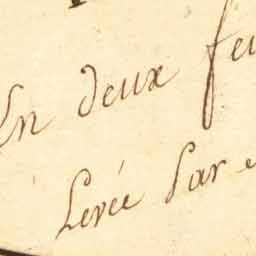 En deux feu
Levée Par